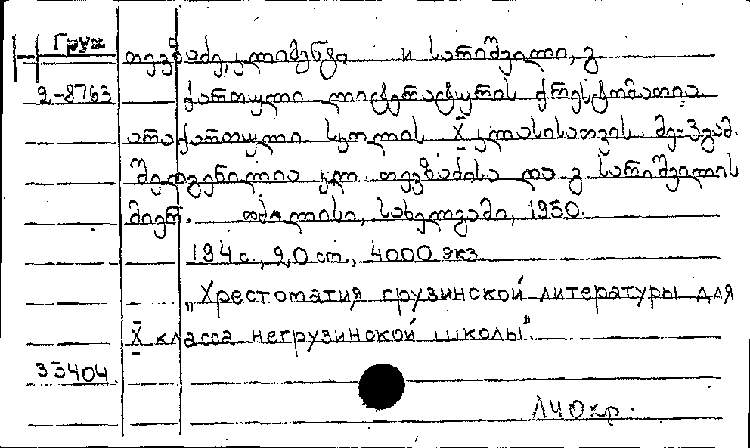 Груз
თევზაძე, კლიმენტი და სარიშვილი, გ
2-8763 ქართული ლიტერატურის ქრესტომათია
არაქართული სკოლის X კლასისათვის. მე-3 გამ.
შედგენილია კლ. თევზაძისა და გ. სარიშვილის
მიერ. თბილისი, სახელგამი, 1950.
194 с., 2,0 ст., 4000 экз
„Хрестоматия грузинской литературы для
X класса негрузинской школы".
33404